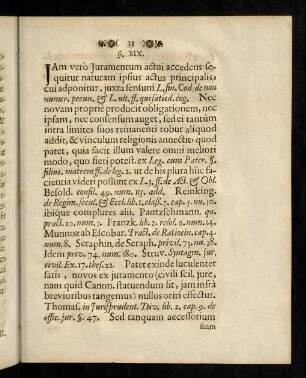 33
§. XIX.
JAm verò Juramentum actui accedens se-
quitur naturam ipsius actus principalis,
cui adponitur, juxta sensum L. fin. Cod. de non
numer. pecun. & L. ult. ff. qui satisd. cog. Nec
novam propriè producit obligationem, nec
ipsam, nec consensum auget, sed ei tantùm
intra limites suos remanenti robur aliquod
addit, & vinculum religionis annectit: quod
patet, quia facit illum valere omni meliori
modo, quo fieri potest. ex Leg. cum Pater. §.
filius. matrem ff. de leg. 2. ut de his plura hùc fa-
ciencia videri possunt ex L. 3. ff. de Act. & Obl.
Besold. consil. 49. num. 115. add. Reinking.
de Regim. secul. & Eccl. lib. 1. class. 2. cap. 5. nu. 10.
ibique complures alii. Pantzschmann. qu.
pract. 10. num. 5. Franzk. lib. 2. resol. 6. num. 14.
Munnoz ab Escobar. Tract. de Ratiocin. cap. 4.
num. 8. Seraphin. de Seraph. privil. 73. nu. 28.
Idem priv. 74. num. 180. Struv. Syntagm. jur.
civil. Ex. 17. thes. 22. Patet exinde luculenter
satis, novos ex juramento (civili scil. jure,
nam quid Canon. statuendum sit, jam infrà
brevioribus tangemus) nullos oriri effectus.
Thomas. in Jurisprudent. Div. lib. 2. cap. 9. de
offic. jur. §. 47. Sed tanquam accessorium
suam